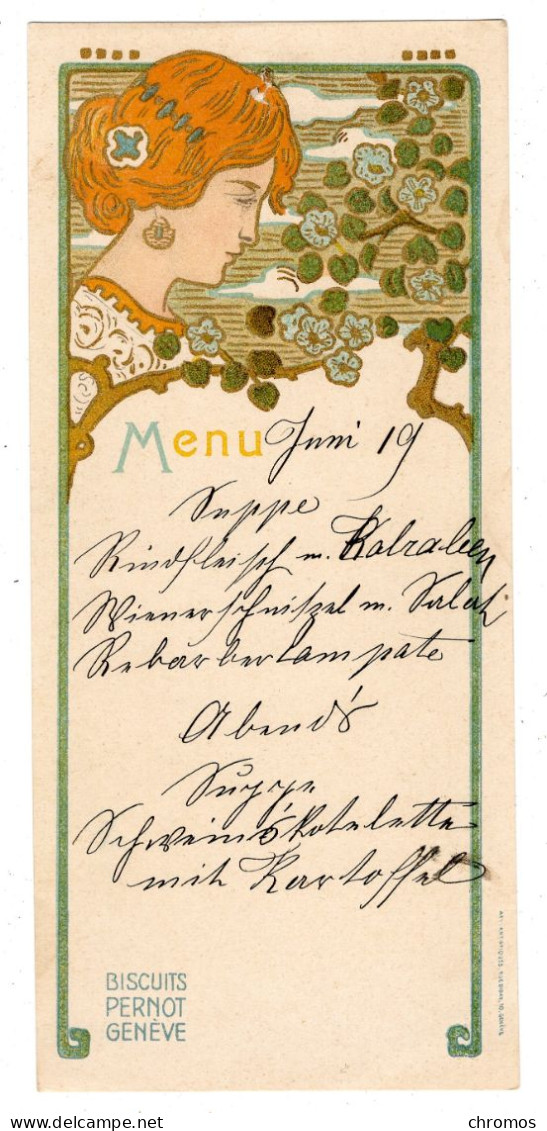 Menu Juni 19
Suppe
Rindfleisch m. Kolraben
Wienerschnitzel m. Salat
Rebarberkompote
Abend's
Suppe
Schweinskotelette
mit Kartoffel
BISCUITS
PERNOT
GENÈVE
delcampe.net
chromos